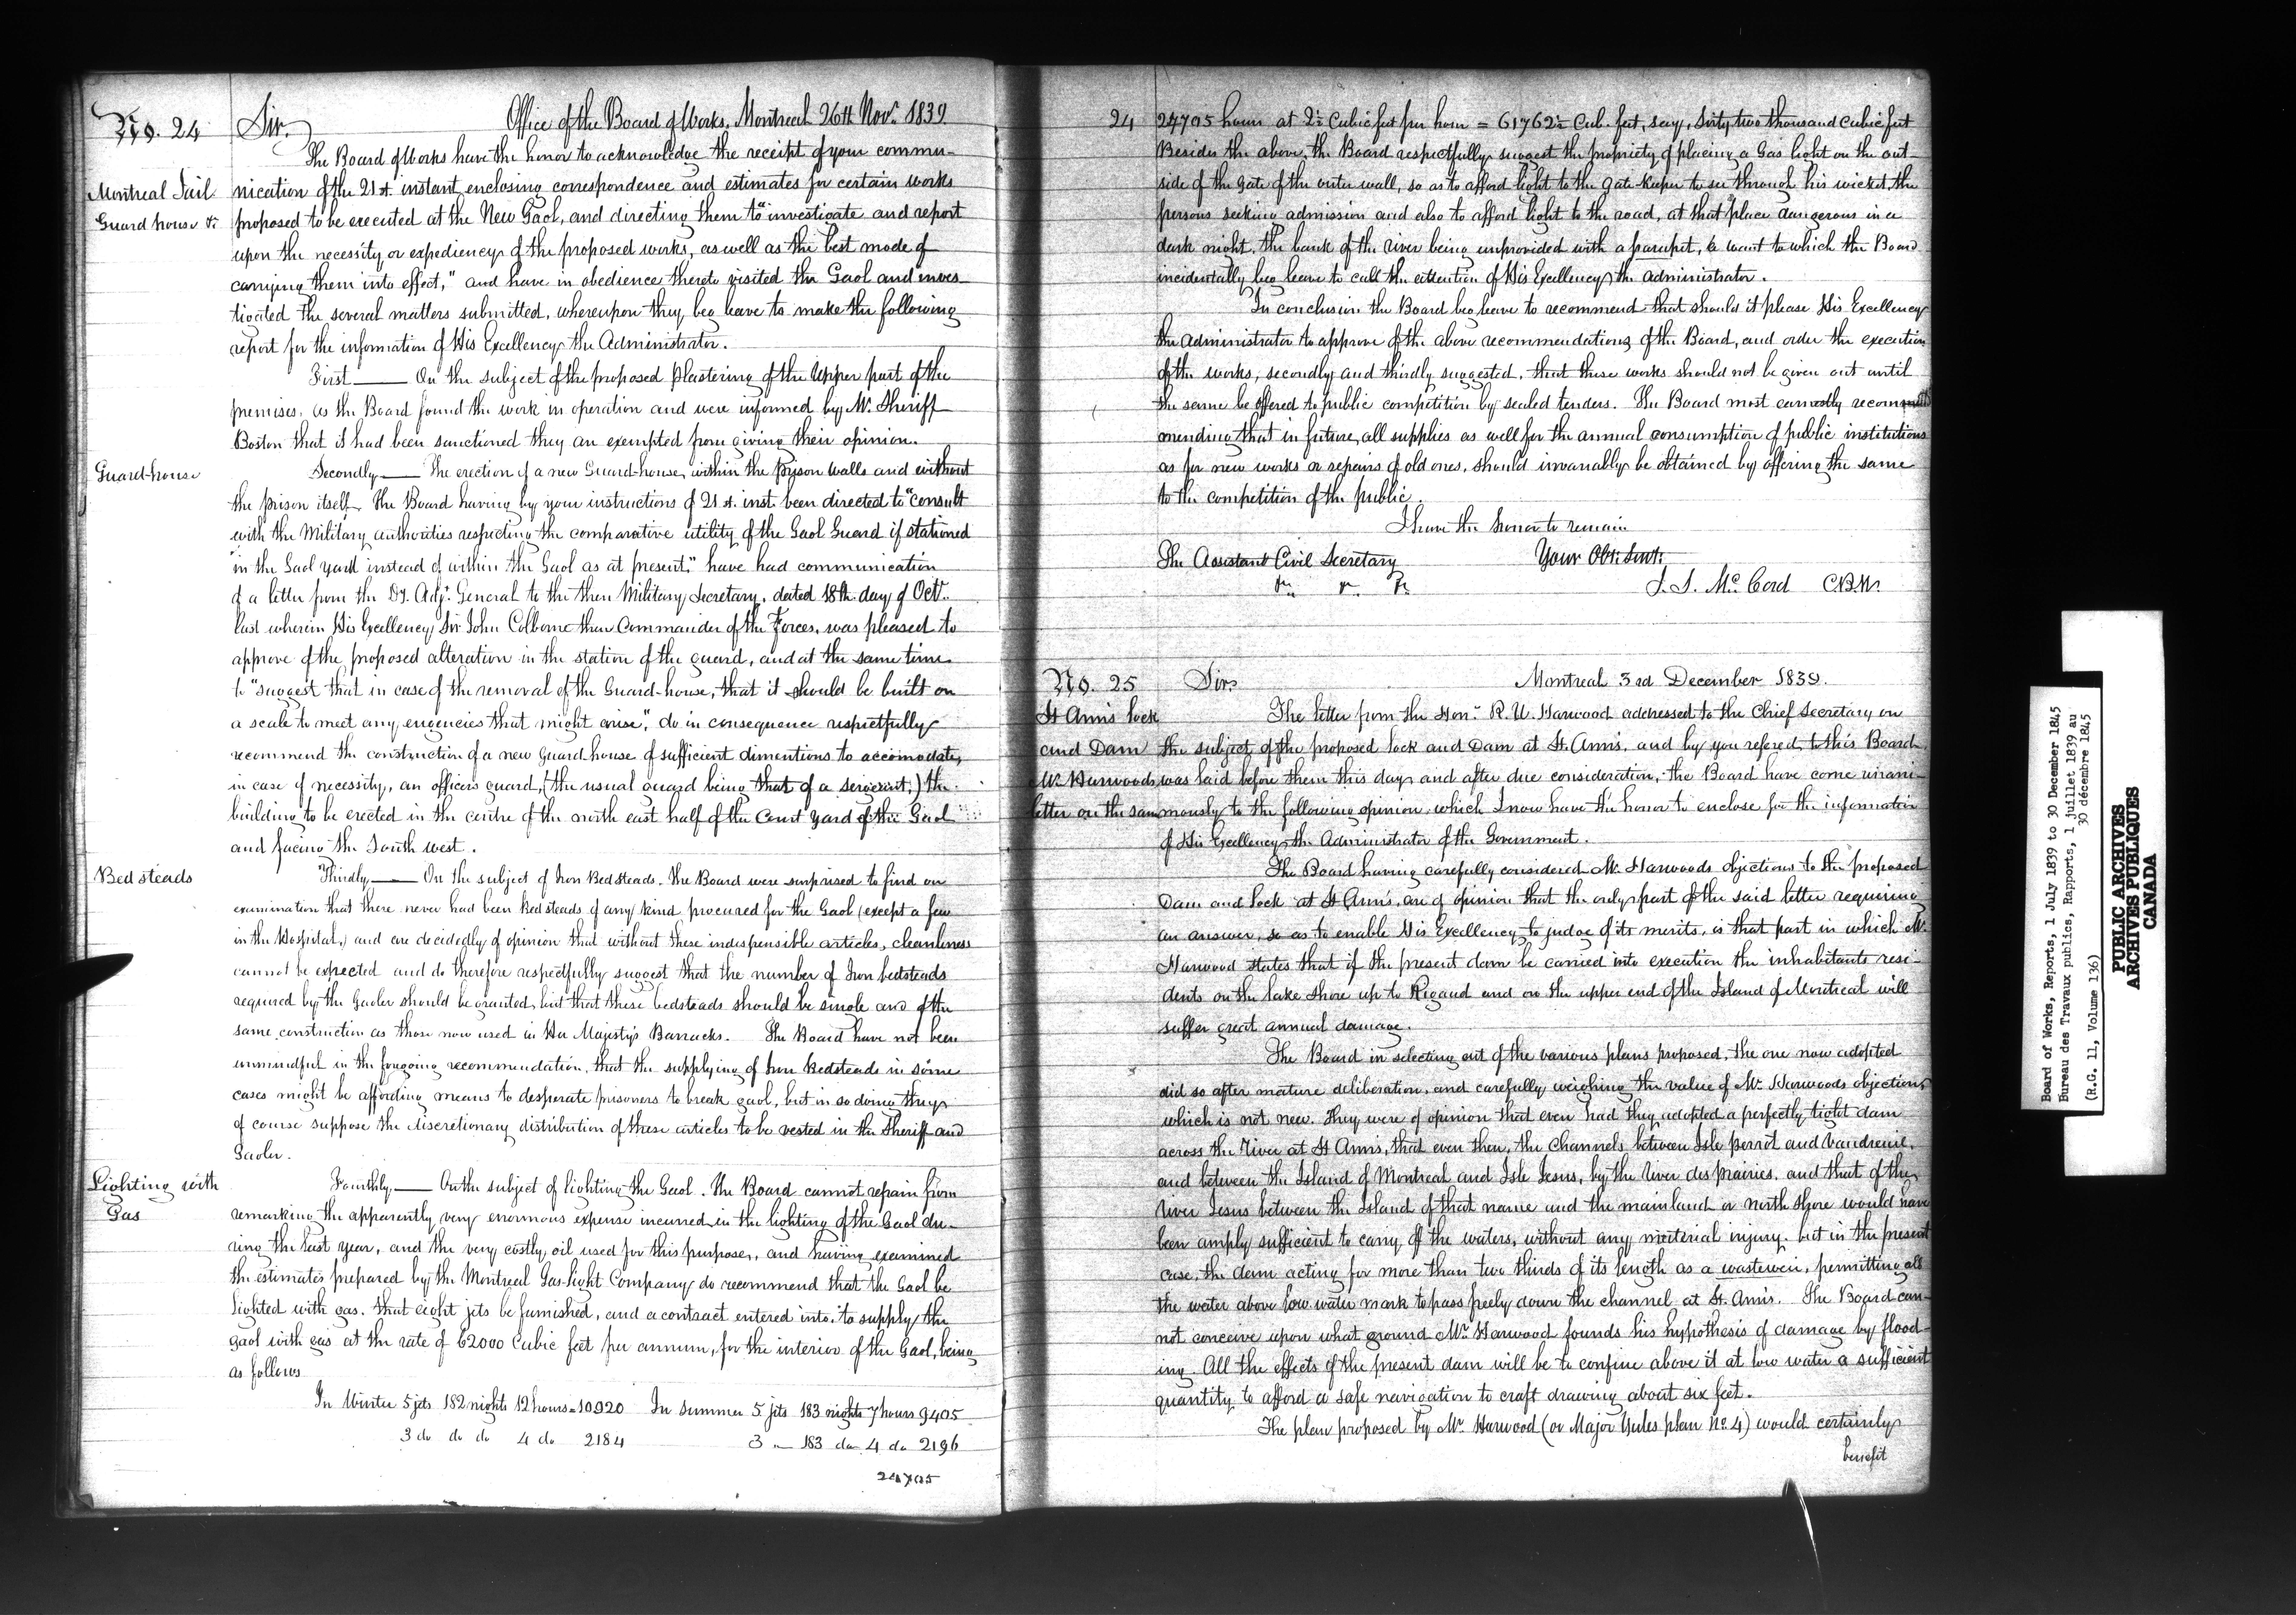 No. 24
Sir,
Office of the Board of Works, Montreal 26th Novr. 1839
The Board of Works have the honor to acknowledge the receipt of your commu-
Montreal Jail
nication of the 21st instant, enclosing correspondence and estimates for certain works
Guard house &
proposed to be executed at the New Gaol, and directing them to "investigate and report
upon the necessity or expediency of the proposed works, as well as the best mode of
carrying them into effect," and have in obedience thereto visited the Gaol and inves-
tigated the several matters submitted, whereupon they beg leave to make the following
report for the information of His Excellency the Administrator.
First —— On the subject of the proposed Plastering of the Upper part of the
premises, as the Board found the work in operation and were informed by Mr. Sheriff
Boston that it had been sanctioned they are exempted from giving their opinion.
Guard-house
Secondly —— The erection of a new Guard-house, within the prison walls and without
the prison itself. The Board having by your instructions of 21st. inst. been directed to "consult
with the Military authorities respecting the comparative utility of the Gaol Guard if stationed
in the Gaol yard instead of within the Gaol as at present," have had communication
of a letter from the Dy. Adjt. General to the then Military Secretary, dated 18th day of Octr.
last wherein His Excellency Sir John Colborne then Commander of the Forces, was pleased to
approve of the proposed alteration in the station of the guard, and at the same time
to "suggest that in case of the removal of the Guard-house, that it should be built on
a scale to meet any exigencies that might arise", do in consequence respectfully
recommend the construction of a new guard-house of sufficient dimentions to accomodate,
in case of necessity, an officers guard, (the usual guard being that of a sergeant,) the
building to be erected in the centre of the north east half of the Court yard of the Gaol
and facing the South west.
Bedsteads
Thirdly —— On the subject of Iron Bedsteads. The Board were surprised to find on
examination that there never had been bedsteads of any kind procured for the Gaol (except a few
in the Hospital,) and are decidedly of opinion that without these indispensible articles, cleanliness
cannot be expected and do therefore respectfully suggest that the number of Iron bedsteads
required by the Gaoler should be granted, but that these bedsteads should be single and of the
same construction as those now used in Her Majesty's Barracks. The Board have not been
unmindful in the foregoing recommendation, that the supplying of Iron Bedsteads in some
cases might be affording means to desperate prisoners to break gaol, but in so doing they
of course suppose the discretionary distribution of these articles to be vested in the Sheriff and
Gaoler.
Lighting with
Gas
Fourthly —— On the subject of lighting the Gaol. The Board cannot refrain from
remarking the apparently very enormous expense incurred in the lighting of the Gaol du-
ring the last year, and the very costly oil used for this purpose, and having examined
the estimates prepared by the Montreal Gas-light Company do recommend that the Gaol be
lighted with gas, that eight jets be furnished, and a contract entered into to supply the
gaol with gas at the rate of 62000 Cubic feet per annum, for the interior of the Gaol, being
as follows
In Winter 5 jets 182 nights 12 hours = 10920 In summer 5 jets 183 nights 7 hours 9405
3 do do do 4 do 2184 3 " 183 do 4 do 2196
24705
24
24705 hours at 2½ Cubic feet per hour = 61762½ Cub. feet, say, Sixty two thousand Cubic feet
Besides the above, the Board respectfully suggest the propriety of placing a Gas light on the out-
side of the gate of the outer wall, so as to afford light to the gate-keeper to see through his wicket, the
persons seeking admission and also to afford light to the road, at that place dangerous in a
dark night, the bank of the river being unprovided with a parapet, a want to which the Board
incidentally beg leave to call the attention of His Excellency the Administrator.
In conclusion the Board beg leave to recommend that should it please His Excellency
the Administrator to approve of the above recommendations of the Board, and order the execution
of the works, secondly and thirdly suggested, that these works should not be given out until
the same be offered to public competition by sealed tenders. The Board most earnestly recom
mending that in future, all supplies as well for the annual consumption of public institutions
as for new works or repairs of old ones, should invariably be obtained by offering the same
to the competition of the public.
I have the honor to remain
The Assistant Civil Secretary
Your Obt. Servt.
&c. &c. &c.
J. S. Mc Cord C.B.W.
No. 25
Sir,
Montreal 3rd December 1839.
St Ann's lock
The letter from the Honble. R. U. Harwood addressed to the Chief Secretary on
and Dam
the subject of the proposed lock and Dam at St. Ann's, and by you refered to this Board,
Mr. Harwoods
was laid before them this day and after due consideration, the Board have come unani-
letter on the same
mously to the following opinion which I now have the honor to enclose for the information
of His Excellency the Administrator of the Government.
The Board having carefully considered Mr. Harwoods objections to the proposed
Dam and lock at St Ann's, are of opinion that the only part of the said letter requiring
an answer, so as to enable His Excellency to judge of its merits, is that part in which Mr.
Harwood states that if the present dam be carried into execution the inhabitants resi-
dents on the lake shore up to Rigaud and on the upper end of the Island of Montreal will
suffer great annual damage.
The Board in selecting out of the various plans proposed, the one now adopted
did so after mature deliberation, and carefully weighing the value of Mr. Harwoods objections
which is not new. They were of opinion that even had they adopted a perfectly tight dam
across the River at St Ann's, that even then, the Channels between Isle perrot and Vaudreuil,
and between the Island of Montreal and Isle Jesus, by the River des prairies, and that of the
River Jesus between the Island of that name and the mainland or north shore would have
been amply sufficient to carry off the waters, without any material injury. but in the present
case, the dam acting for more than two thirds of its length as a wasteweir, permitting all
the water above low water mark to pass freely down the channel at St. Ann's. The Board can-
not conceive upon what ground Mr. Harwood founds his hypothesis of damage by flood-
ing. All the effects of the present dam will be to confine above it at low water a sufficient
quantity to afford a safe navigation to craft drawing about six feet.
The plan proposed by Mr. Harwood (or Major Yules plan No. 4) would certainly
benefit
Board of Works, Reports, 1 July 1839 to 30 December 1845
Bureau des Travaux publics, Rapports, 1 juillet 1839 au
30 décembre 1845
(R.G. 11, Volume 136)
PUBLIC ARCHIVES
ARCHIVES PUBLIQUES
CANADA